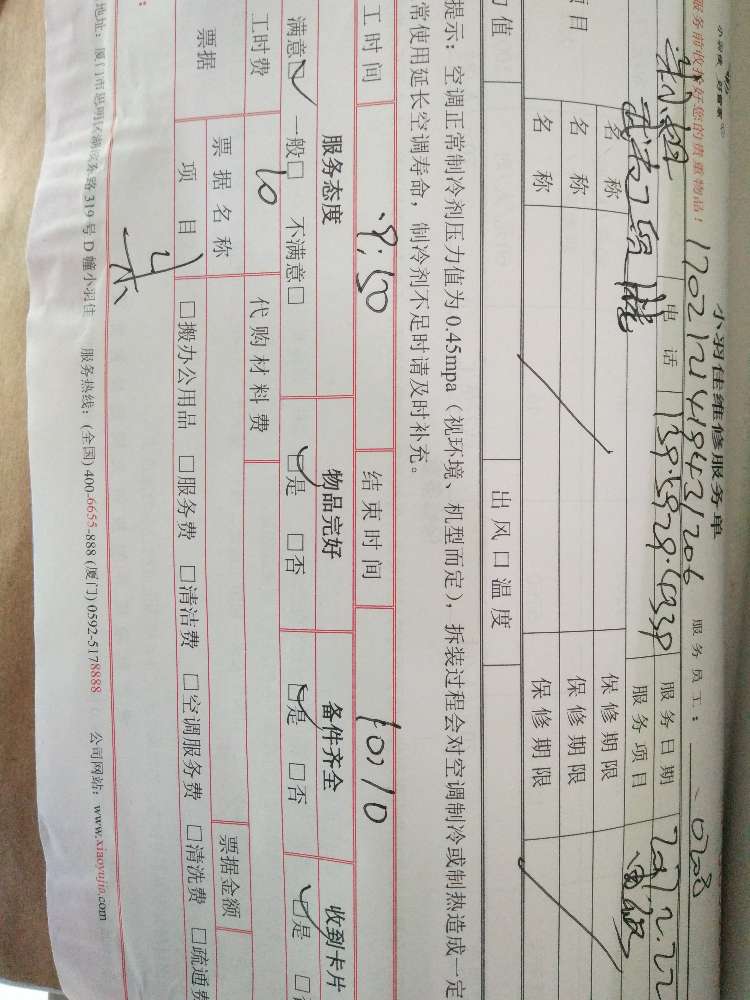 小羽佳 好管家
服务前收拾好您的贵重物品!
小羽佳维修服务单
170212141942/206 服务员工: 0208
电话 服务日期 2017.2.22
服务项目
名称 保修期限
名称 保修期限
名称 保修期限
项目
力值 出风口温度
提示:空调正常制冷剂压力值为0.45mpa(视环境、机型而定),拆装过程会对空调制冷或制热造成一定
常使用延长空调寿命,制冷剂不足时请及时补充。
工时间 9:50 结束时间 10:10
服务态度 物品完好 备件齐全 收到卡片
满意□ 一般□ 不满意□ □是 □否 □是 □否 □是
工时费 10 代购材料费
票据 票据名称 票据金额
项目 □搬办公用品 □服务费 □清洁费 □空调服务费 □清洗费 □疏通费
地址:厦门市思明区湖滨东路319号D幢小羽佳 服务热线:(全国)400-6655-888 (厦门)0592-5178888 公司网站:www.xiaoyujia.com